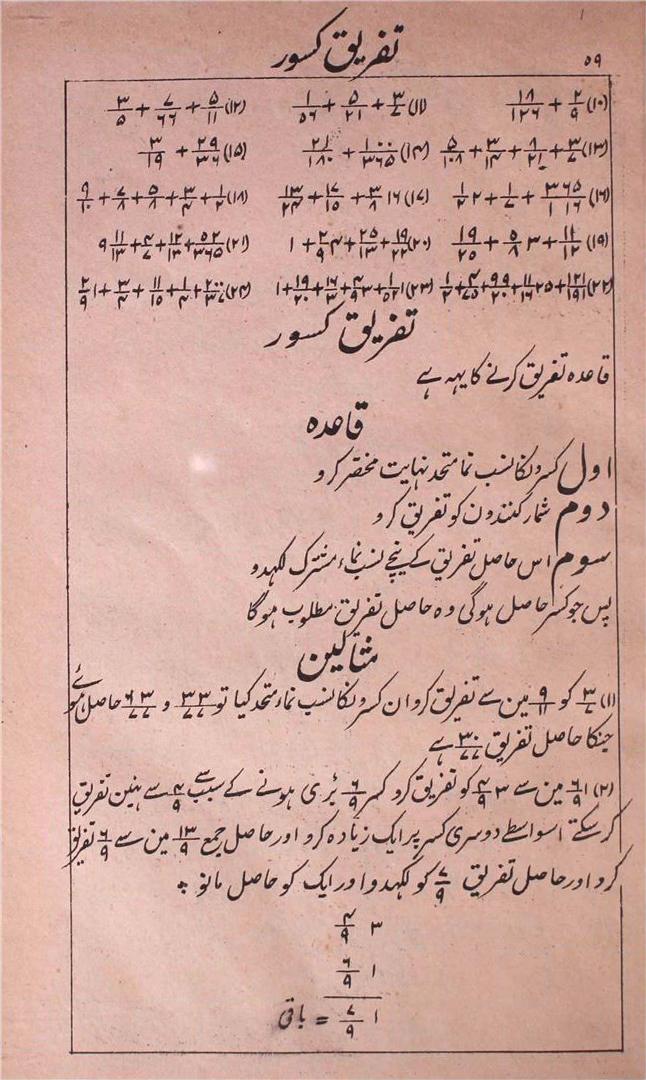 ۵۹
تفریق کسور
(۱۰) ۲/۹ + ۱۸/۱۲۶ (۱۱) ۳/۷ + ۵/۲۱ + ۱/۵۶ (۱۲) ۵/۱۱ + ۷/۶۶ + ۳/۵
(۱۳) ۳/۷ + ۸/۲۱ + ۳/۱۴ + ۵/۱۰۸ (۱۴) ۱۰۰/۳۶۵ + ۲۱/۱۸۰ (۱۵) ۲۹/۳۶ + ۳/۱۹
(۱۶) (۱۷) ۱۶ ۳/۸ + ۱۷/۱۵ + ۱۳/۲۴ (۱۸) ۱/۲ + ۳/۴ + ۵/۸ + ۷/۸ + ۹/۱۰
(۱۹) ۱۱/۱۲ + ۳ ۵/۸ + ۱۹/۲۵ (۲۰) ۱۹/۲۲ + ۲۵/۱۳ + ۴ ۲/۹ + ۱ (۲۱) ۵۲/۳۶۵ + ۱۲/۱۳ + ۴/۷ + ۹ ۱۱/۱۳
(۲۲) (۲۳) (۲۴)
تفریق کسور
قاعدہ تفریق کرنے کا یہہ ہے
قاعدہ
اول کسرونکا نسب نما متحد نہایت مختصر کرو
دوم شمار کنندون کو تفریق کرو
سوم اس حاصل تفریق کے نیچے نسب نماء مشترک لکہدو
پس جو کسر حاصل ہوگی وہ حاصل تفریق مطلوب ہوگا
مثالین
(۱) ۳/۷ کو ۹/۱۱ مین سے تفریق کرو ان کسرونکا نسب نماء متحد کیا تو ۳۳/۷۷ و ۶۳/۷۷ حاصل ہوئے
جنکا حاصل تفریق ۳۰/۷۷ ہے
(۲) ۱ ۶/۹ مین سے ۳ ۴/۹ کو تفریق کرو کسر ۶/۹ بڑی ہونے کے سبب سے ۴/۹ سے نہین تفریق
کرسکتے اسواسطے دوسری کسر پر ایک زیادہ کرو اور حاصل جمع ۱۳/۹ مین سے ۶/۹ تفریق
کرو اور حاصل تفریق ۷/۹ کو لکہدو اور ایک کو حاصل مانو
۳ ۴/۹
۱ ۶/۹
۱ ۷/۹ = باقی